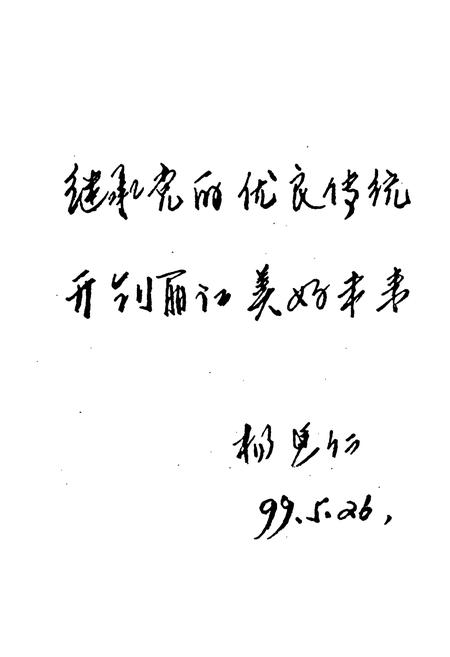 继承党的优良传统
开创丽江美好未来
杨
99.5.26,